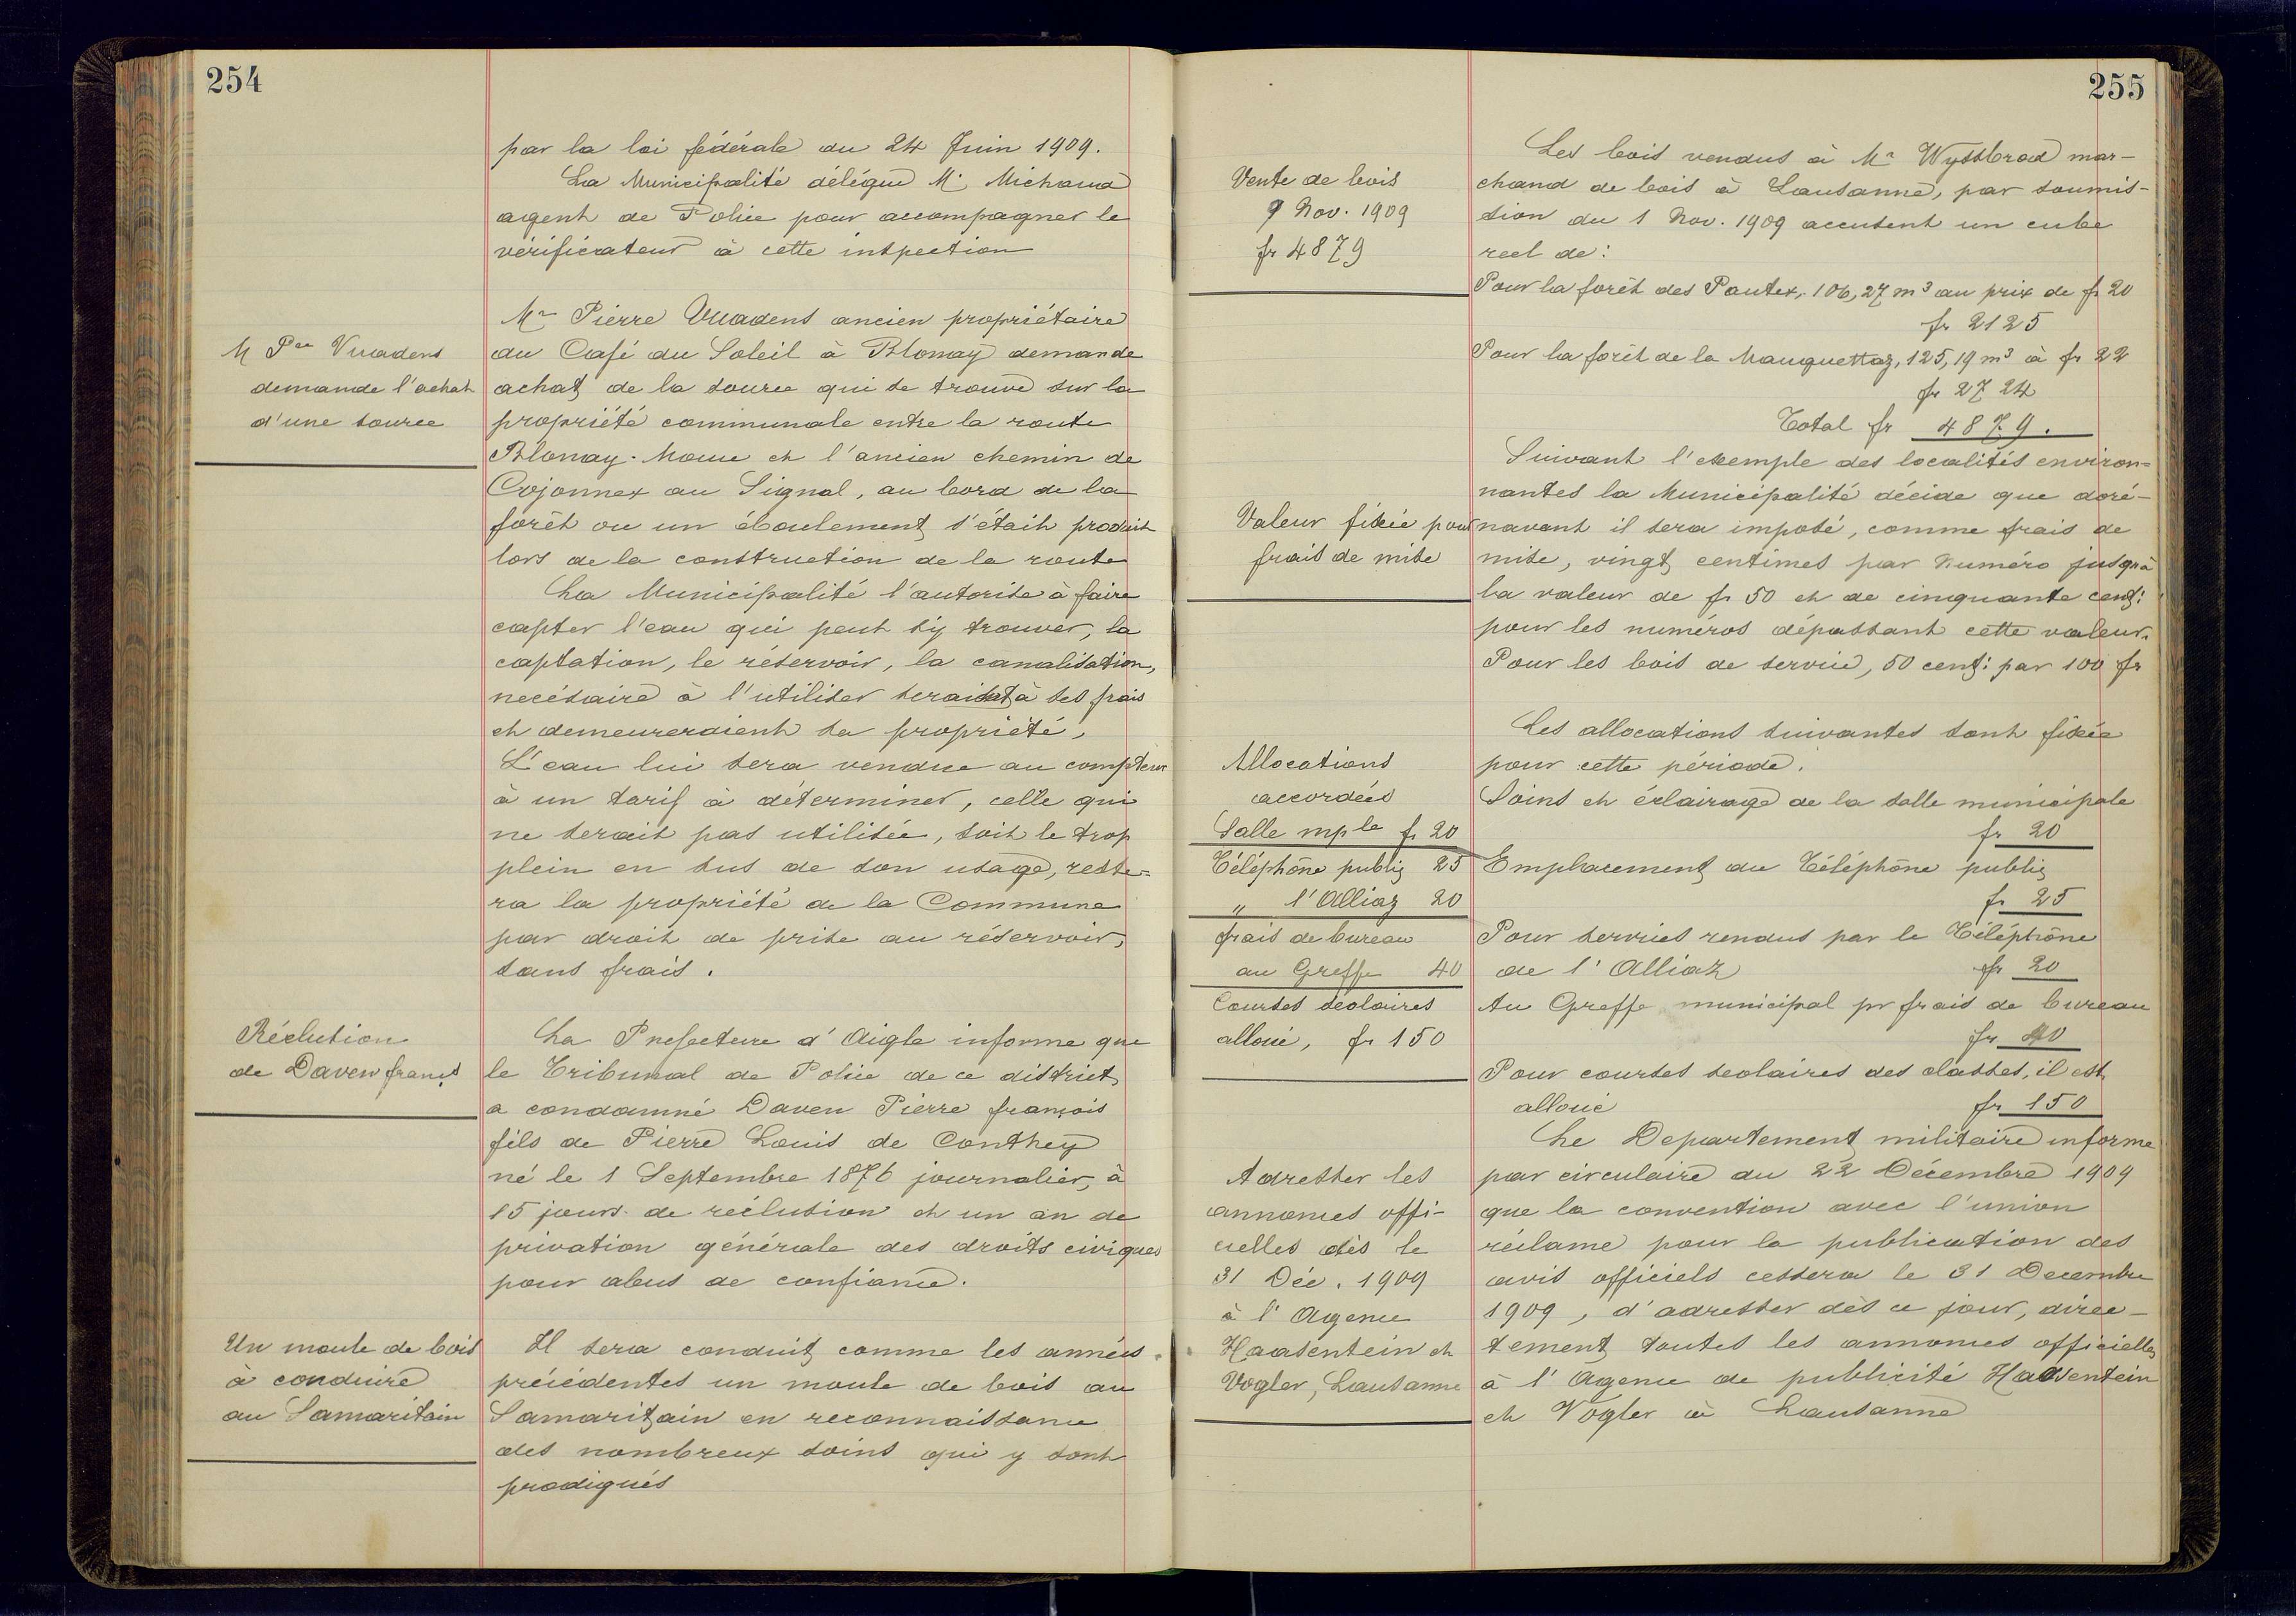 254
par la loi fédérale du 24 Juin 1909.
La Municipalité délégue M. Michaud
agent de Police pour accompagner le
vérificateur à cette inspection
M Pre Vuadens
demande l'achat
d'une source
Mr Pierre Vuadens ancien propriétaire
du Café du Soleil à Blonay demande
achat de la source qui se trouve sur la
propriété communale entre la route
Blonay-
et l'ancien chemin de
Cojonnex au Signal, au bord de la
forêt ou un éboulement s'était produit
lors de la construction de la route
La Municipalité l'autorise à faire
capter l'eau qui peut s'y trouver, la
captation, le réservoir, la canalisation,
necésaire à l'utiliser seraient à ses frais
et demeureraient sa propriété,
L'eau lui sera vendue au compteur
à un tarif à déterminer, celle qui
ne serait pas utilisée, soit le trop
plein en sus de son usage, reste-
ra la propriété de la Commune
par droit de prise au réservoir,
sans frais.
Réclusion
de Daven franç̧s
La Prefecture d'Aigle informe que
le Tribunal de Police de ce district
a condamné Daven Pierre françois
fils de Pierre Louis de Conthey
né le 1 Septembre 1876 journalier, à
15 jours de réclusion et un an de
privation générale des droits civiques
pour abus de confiance.
Un moule de bois
à conduire
au Samaritain
Il sera conduit comme les années
précédentes un moule de bois au
Samaritain en reconnaissance
des nombreux soins qui y sont
prodigués
255
Vente de bois
9 Nov. 1909
fr 4879
Les bois vendus à Mr Wyssbrod mar-
chand de bois à Lausanne, par soumis-
sion du 1 Nov. 1909 accusent un cube
reel de:
Pour la forêt des Pautex, 106,27 m3 au prix de fr 20
fr 2125
Pour la forêt de la Mauguettaz, 125,19 m3 à fr 22
fr 2724
Total fr 4879.
Valeur fixée pour
frais de mise
Suivant l'exemple des localités environ-
nantes la Municipalité décide que doré-
navant il sera imposé, comme frais de
mise, vingt centimes par Numéro jusqu'à
la valeur de fr 50 et de cinquante cent:
pour les numéros dépassant cette valeur.
Pour les bois de service, 50 cent: par 100 fr
Allocations
accordées
Salle mple fr 20
Téléphone public 25
" l'Alliaz 20
frais de bureau
au Greffe 40
Courses scolaires
alloué, fr 150
Les allocations suivantes sont fixée
pour cette période.
Soins et éclairage de la salle municipale
fr 20
Emplacement du Téléphône public
fr 25
Pour services rendus par le Téléphône
de l'Alliaz fr 20
Au Greffe municipal pr frais de bureau
fr 40
Pour courses scolaires des classes, il est
alloué fr 150
Adresser les
annonces offi-
cielles dès le
31 Déc. 1909
à l'Agence
Haasentein et
Vogler, Lausanne
Le Departement militaire informe
par circulaire du 22 Décembre 1909
que la convention avec l'union
réclame pour la publication des
avis officiels cessera le 31 Decembre
1909, d'adresser dès ce jour, direc-
tement toutes les annonces officielles
à l'Agence de publicité Haasentein
et Vogler à Lausanne